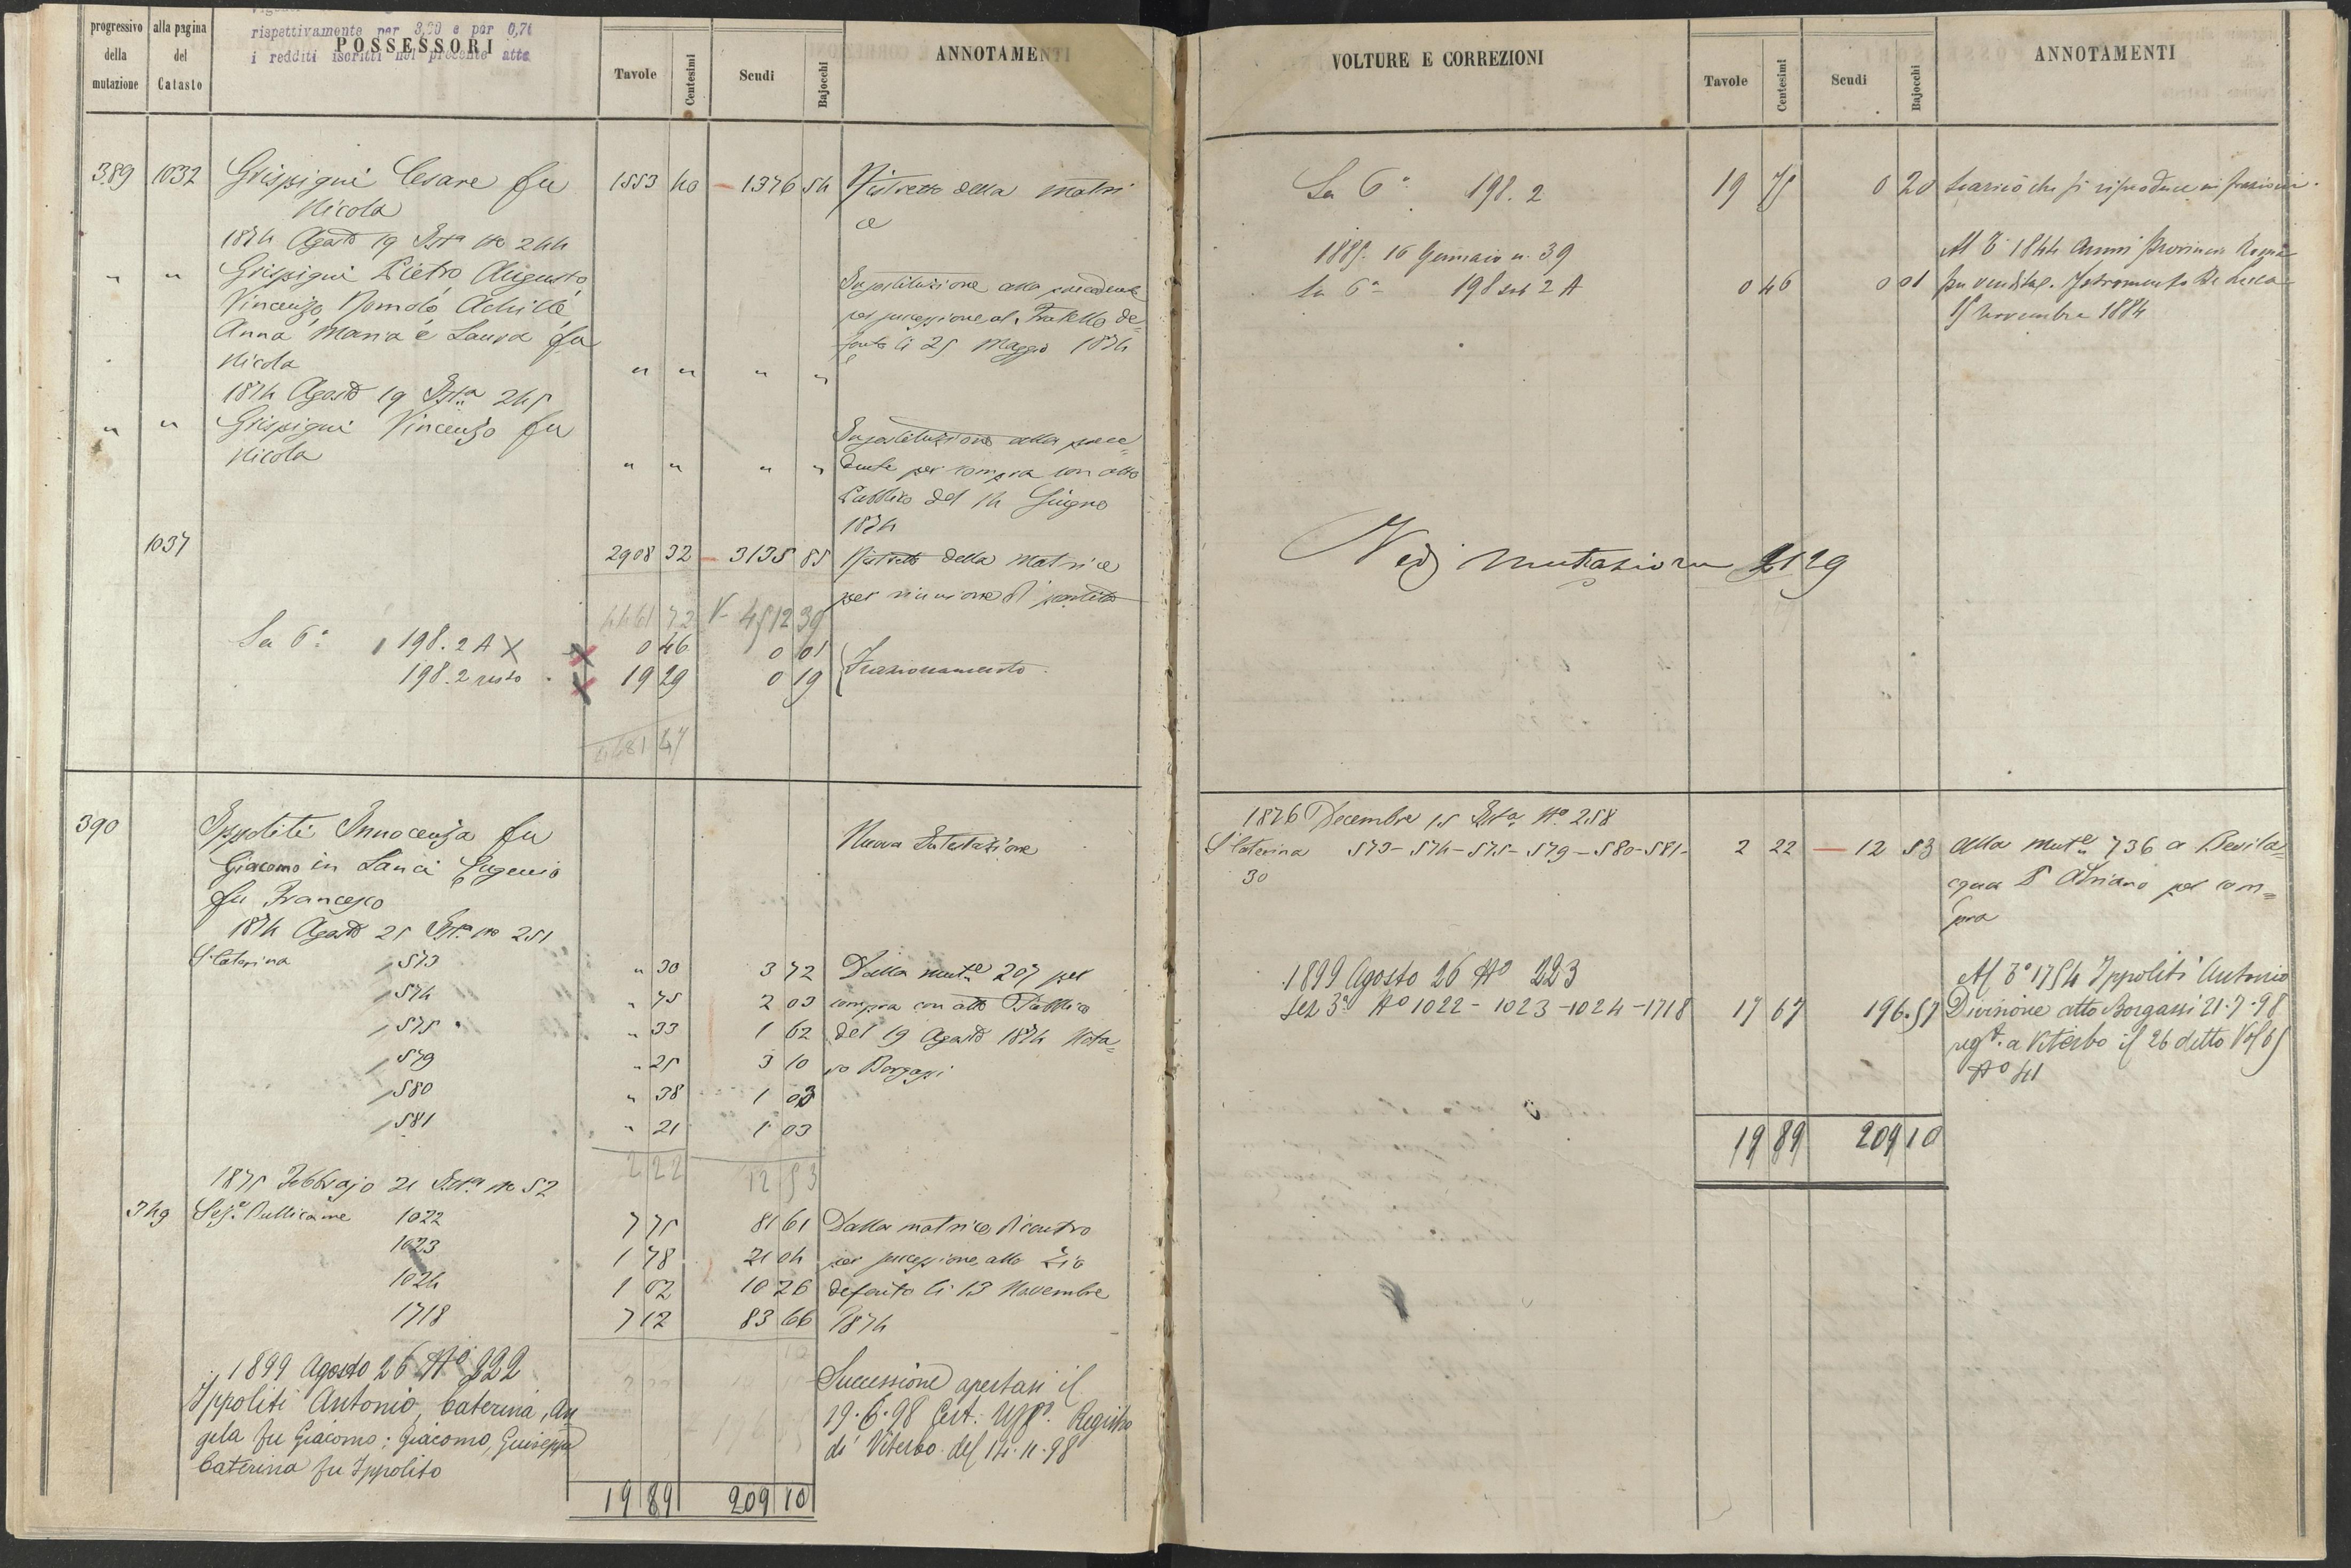 progressivo della mutazione
alla pagina del Catasto
rispettivamente per 3,00 e per 0,70
POSSESSORI
i redditi iscritti nel presente atto
Tavole Centesimi Scudi Bajocchi
ANNOTAMENTI
389 1032 Grispigni Cesare fu 1553 40 – 1376 54 Ristretto della Matri
Nicola ce
1874 Agosto 19 Ista No 244
" " Grispigni Pietro Augusto
Vincenzo Romolo Achille Sustituzione alla precedente
Anna Maria e Laura fu per successione al Fratello de=
Nicola " " " " fonto li 25 Maggio 1874
1874 Agosto 19 Ista 245
" " Grispigni Vincenzo fu Sustituzione alla prece=
Nicola " " " " dente per compra con atto
Pubblico del 14 Giugno
1874
1037 2908 32 – 3135 85 Ristretto della Matrice
per riunione di partita
4461 72 4512 39
Sa 6a 198.2 A X 0 46 0 01
198.2 resto 19 29 0 19 Frazionamento
4481 47
390 Ippoliti Innocenza fu Nuova Intestazione
Giacomo in Lanci Eugenio
fu Francesco
1874 Agosto 25 Ista No 251
S. Caterina 573 " 30 3 72 Dalla mutne 207 per
574 " 75 2 03 compra con atto Pubblico
575 " 33 1 62 del 19 Agosto 1874 Nota=
579 " 25 3 10 ro Borgassi
580 " 38 1 03
581 " 21 1 03
2 22 12 53
1875 Febbrajo 21 Ista No 52
349 Seze Bullicame 1022 7 75 81 61 Dalla matrice dicontro
1023 1 78 21 04 per successione allo Zio
1024 1 02 10 26 defonto li 13 Novembre
1718 7 12 83 66 1874
1899 Agosto 26 No 222
Ippoliti Antonio, Caterina, An Successione apertasi il
gela fu Giacomo; Giacomo, Giuseppe 19.6.98 Cert. Uffo Registro
Caterina fu Ippolito di Viterbo del 14.11.98
19 89 209 10
VOLTURE E CORREZIONI
Tavole Centesimi Scudi Bajocchi
ANNOTAMENTI
Sa 6a 198.2 19 75 0 20 Scarico che si riproduce in frazioni.
1885. 16 Gennaio n. 39 Al 1844
Sa 6a 198 sub 2 A 0 46 0 01 per vendita. Istromento De Luca
15 Novembre 1884
Vedi mutazione 2129
1876 Decembre 15 Ista No 258
S. Caterina 573-574-575-579-580-581- 2 22 – 12 53 Alla mutne 736 a Bevila=
30 cqua Adriano per com=
pra
1899 Agosto 26 No 223 Al 1754 Ippoliti Antonio
Sez 3a No 1022-1023-1024-1718 17 67 196.57 Divisione atto Borgassi 21.7.98
regt. a Viterbo il 26 detto Vol 65
No 41
19 89 209 10